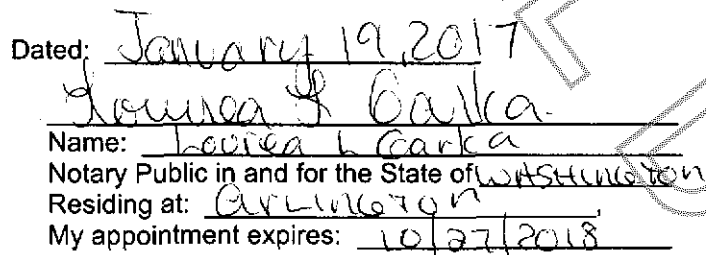 Dated: January 19, 2017
Lourea L Garka
Name: Lourea L Garka
Notary Public in and for the State of WASHINGTON
Residing at: ARLINGTON,
My appointment expires: 10/27/2018